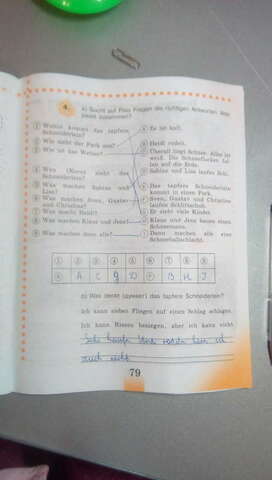 4. a) Sucht auf Pixis Fragen die richtigen Antworten. Was passt zusammen?
① Wohin kommt das tapfere Schneiderlein?
② Wie sieht der Park aus?
③ Wie ist das Wetter?
④ Wen (Кого) sieht das Schneiderlein?
⑤ Was machen Sabine und Lisa?
⑥ Was machen Sven, Gustav und Christine?
⑦ Was macht Heidi?
⑧ Was machen Klaus und Jens?
⑨ Was machen dann alle?
Es ist kalt.
Heidi rodelt.
Überall liegt Schnee. Alles ist weiß. Die Schneeflocken fallen auf die Erde.
Sabine und Lisa laufen Schi.
Das tapfere Schneiderlein kommt in einen Park.
Sven, Gustav und Christine laufen Schlittschuh.
Er sieht viele Kinder.
Klaus und Jens bauen einen Schneemann.
Dann machen alle eine Schneeballschlacht.
① ② ③ ④ ⑤ ⑥ ⑦ ⑧ ⑨
A C G D F B H I
b) Was denkt (думает) das tapfere Schneiderlein?
Ich kann sieben Fliegen auf einen Schlag schlagen.
Ich kann Riesen besiegen, aber ich kann nicht
79